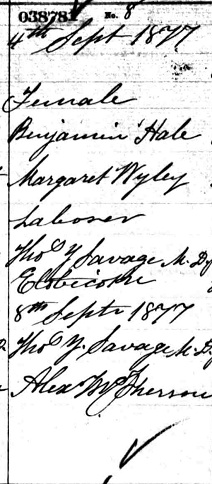 038781 No. 8
4th Sept 1877
Female
Benjamin Hale
Margaret Wyley
Laborer
Thos Y Savage M. D
8th Septr 1877
Thos Y. Savage M. D
Alex McPherson